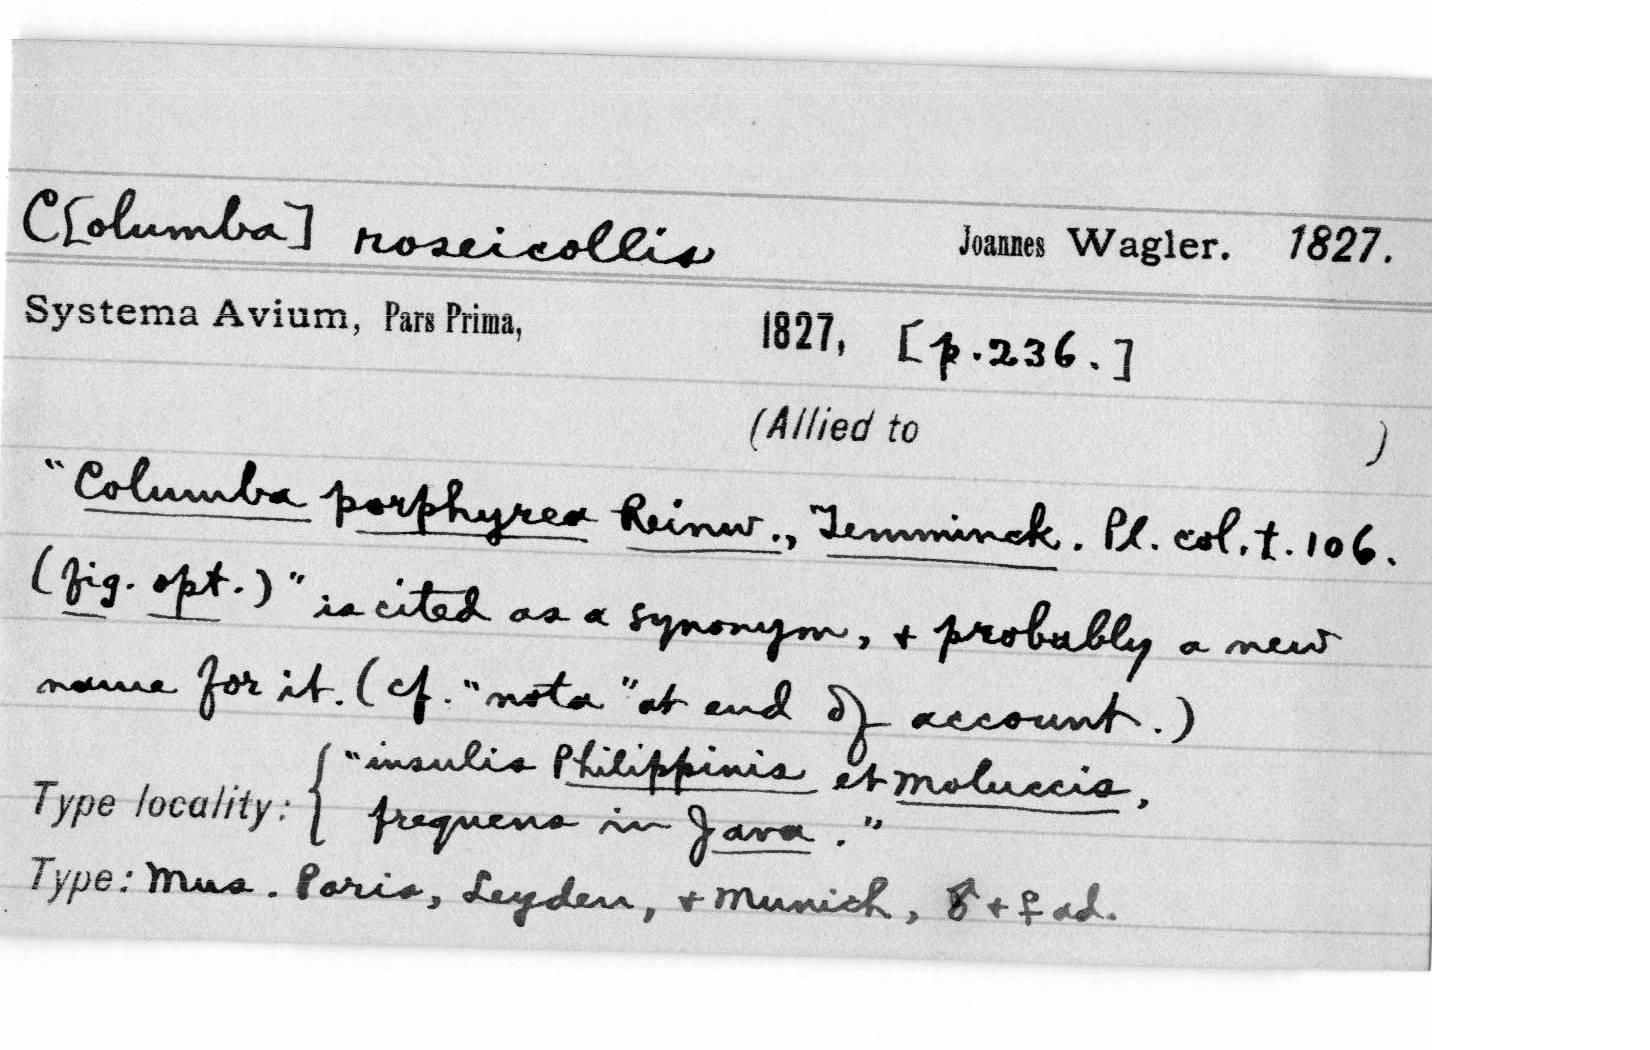 C[olumba] roseicollis Joannes Wagler. 1827.
Systema Avium, Pars Prima, 1827, [p.236.]
(Allied to )
"Columba porphyrea Reinw., Temminck. Pl. col. t. 106.
(fig. opt.)" is cited as a synonym, + probably a new
name for it. (cf. "nota" at end of account.)
Type locality: { "insulis Philippinis et Moluccis,
frequens in Java."
Type: Mus. Paris, Leyden, + Munich, ♂ + ♀ ad.